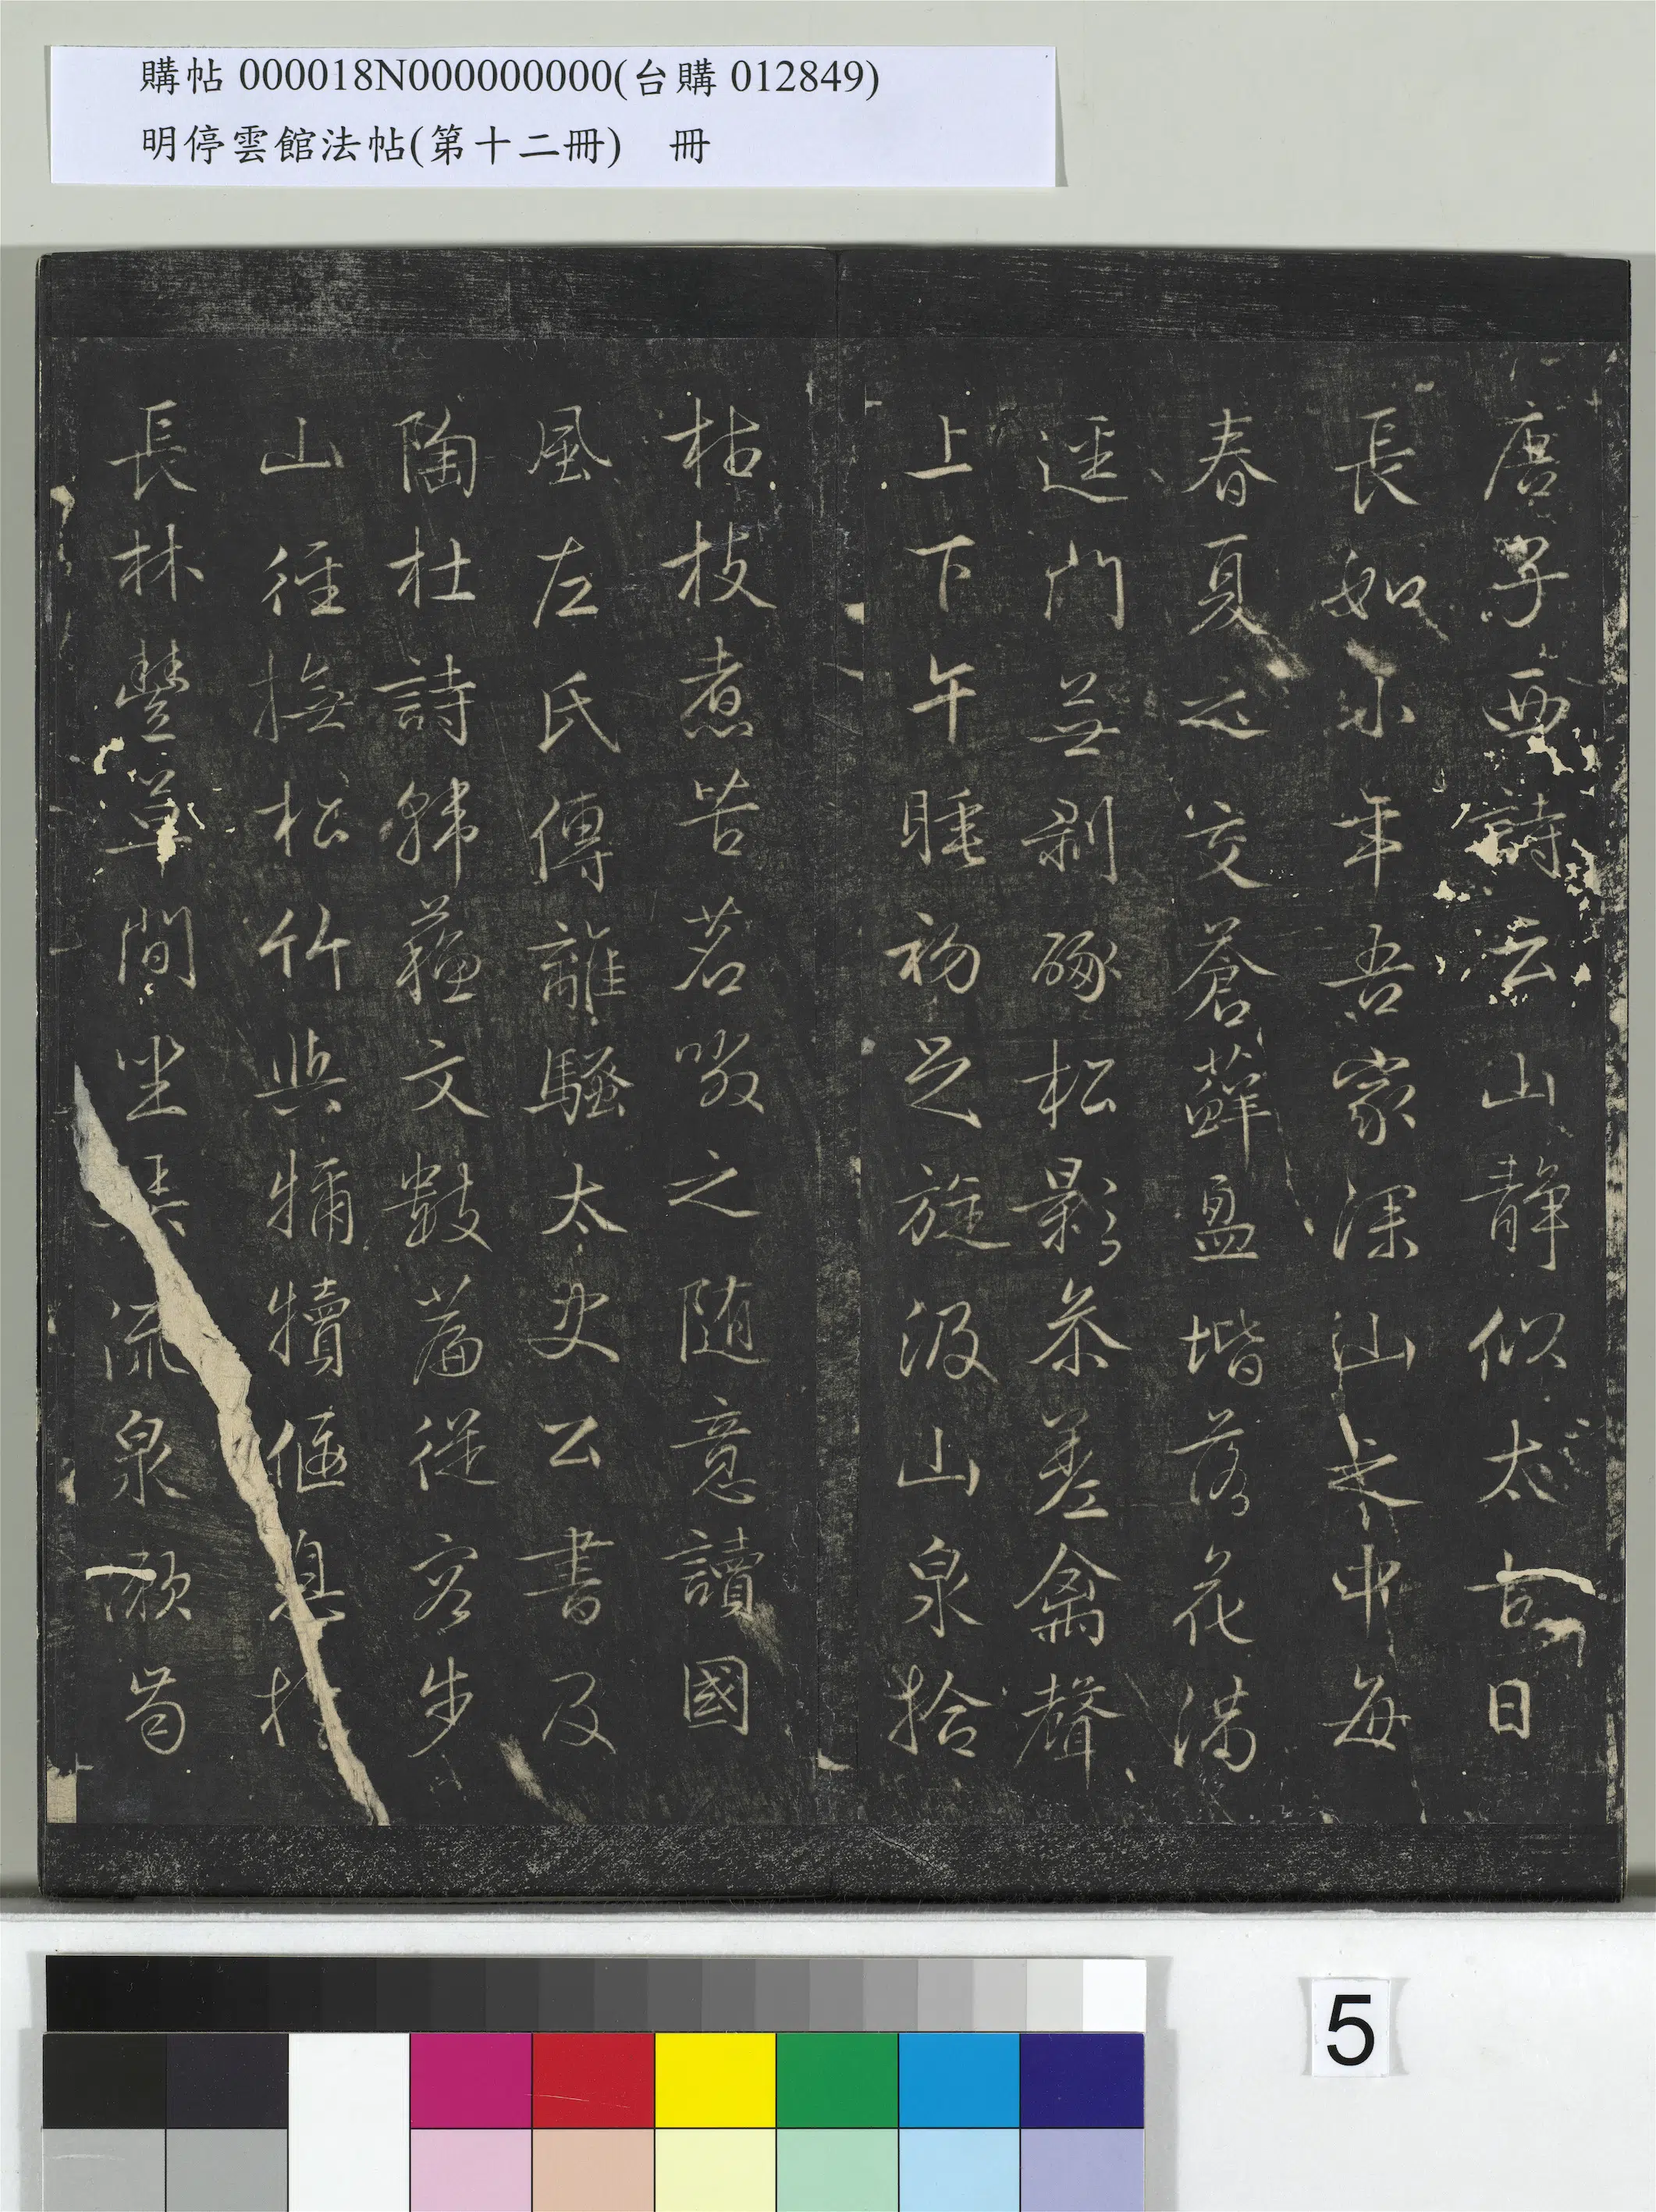 購帖 000018N000000000(台購 012849)
明停雲館法帖(第十二冊) 冊
唐子西詩云山靜似太古日
長如小年吾家深山之中每
春夏之交蒼蘚盈堦落花滿
逕門無剥啄松影參差禽聲
上下午睡初足旋汲山泉拾
枯枝煮苦茗啜之隨意讀國
風左氏傳離騷太史公書及
陶杜詩韓蘇文數篇從容步
山徑撫松竹與犢偃息於
長林豐草間坐弄流泉漱
5